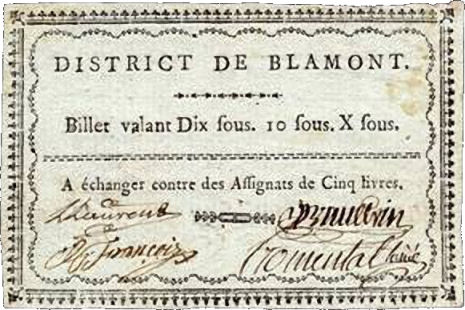 DISTRICT DE BLAMONT.
Billet valant Dix ſous. 10 ſous. X ſous.
A échanger contre des Aſſignats de Cinq livres.
Laurent
François
Fromental